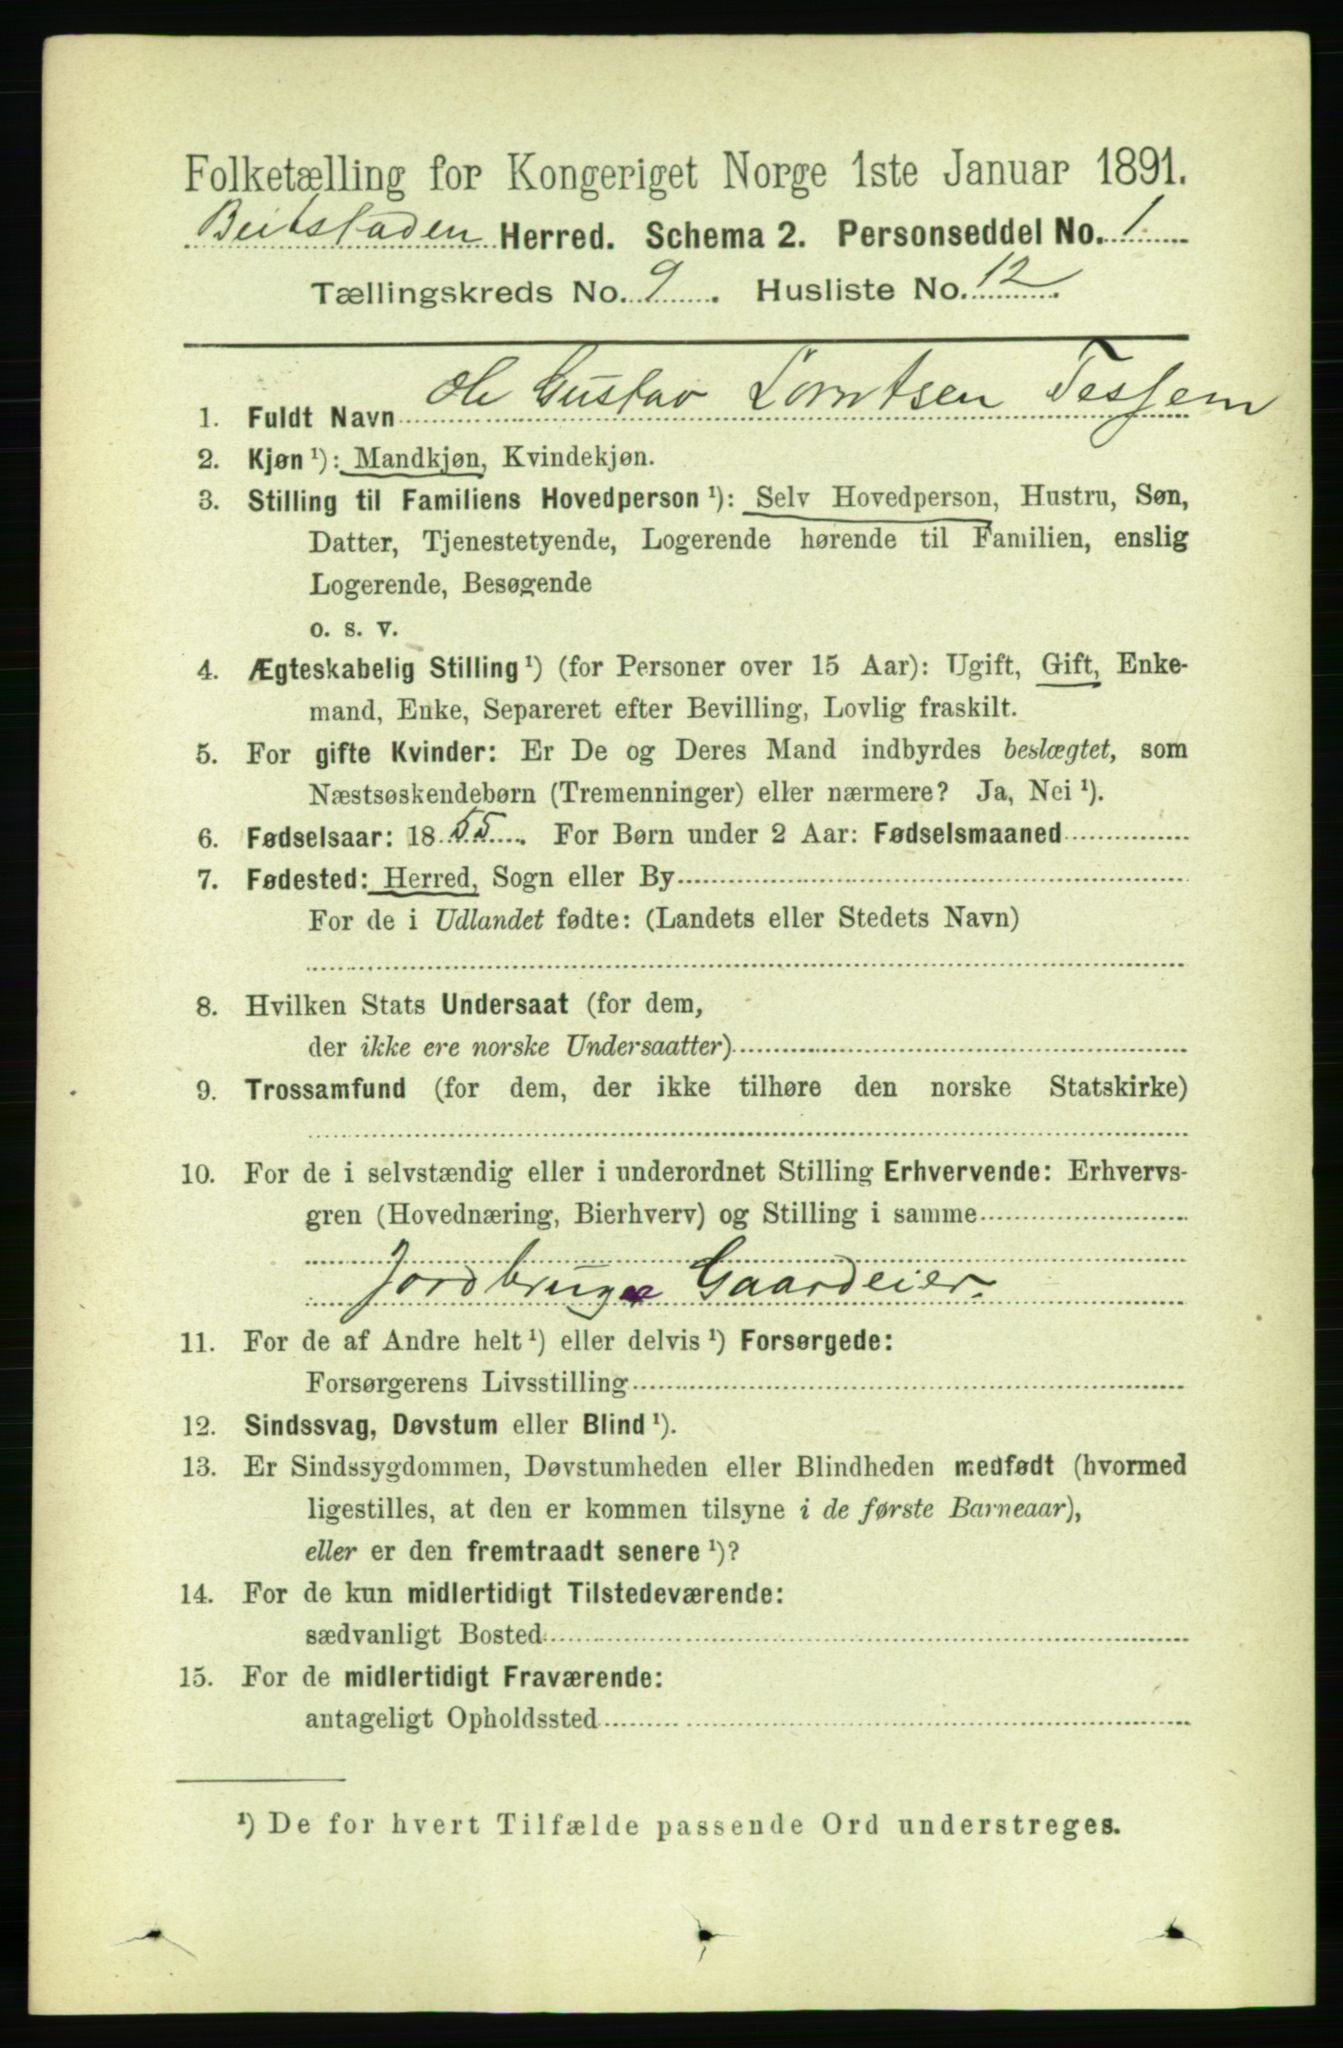 Folketælling for Kongeriget Norge 1ste Januar 1891.
Beitstaden Herred. Schema 2. Personseddel No. 1
Tællingskreds No. 9. Husliste No. 12.
1. Fuldt Navn Ole Gustav Lorntsen Tessem
2. Kjøn ¹): Mandkjøn, Kvindekjøn.
3. Stilling til Familiens Hovedperson ¹): Selv Hovedperson, Hustru, Søn,
Datter, Tjenestetyende, Logerende hørende til Familien, enslig
Logerende, Besøgende
o. s. v.
4. Ægteskabelig Stilling ¹) (for Personer over 15 Aar): Ugift, Gift, Enke-
mand, Enke, Separeret efter Bevilling, Lovlig fraskilt.
5. For gifte Kvinder: Er De og Deres Mand indbyrdes beslægtet, som
Næstsøskendebørn (Tremenninger) eller nærmere? Ja, Nei ¹).
6. Fødselsaar: 1855. For Børn under 2 Aar: Fødselsmaaned
7. Fødested: Herred, Sogn eller By
For de i Udlandet fødte: (Landets eller Stedets Navn)
8. Hvilken Stats Undersaat (for dem,
der ikke ere norske Undersaatter)
9. Trossamfund (for dem, der ikke tilhøre den norske Statskirke)
10. For de i selvstændig eller i underordnet Stilling Erhvervende: Erhvervs-
gren (Hovednæring, Bierhverv) og Stilling i samme
Jordbruger Gaardeier.
11. For de af Andre helt ¹) eller delvis ¹) Forsørgede:
Forsørgerens Livsstilling
12. Sindssvag, Døvstum eller Blind ¹).
13. Er Sindssygdommen, Døvstumheden eller Blindheden medfødt (hvormed
ligestilles, at den er kommen tilsyne i de første Barneaar),
eller er den fremtraadt senere ¹)?
14. For de kun midlertidigt Tilstedeværende:
sædvanligt Bosted
15. For de midlertidigt Fraværende:
antageligt Opholdssted
¹) De for hvert Tilfælde passende Ord understreges.